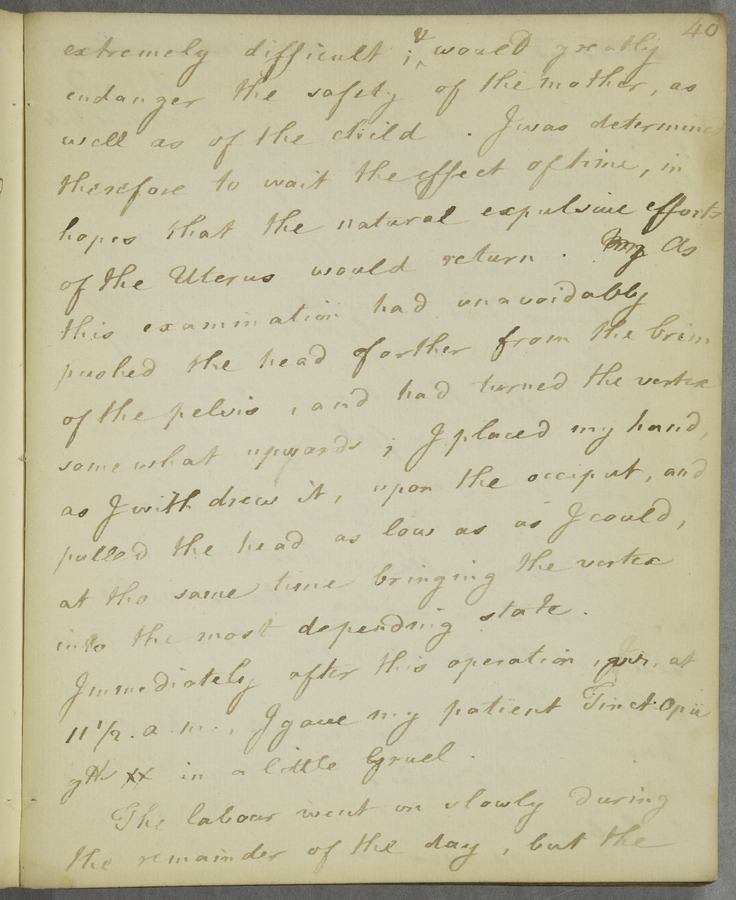 40
extremely difficult ; & would greatly
endanger the safety of the mother, as
well as of the child . I was determined
therefore to wait the effect of time, in
hopes that the natural expulsive efforts
of the Uterus would return . As
this examination had unavoidably
pushed the head forther from the brim
of the pelvis , and had turned the vertex
some what upwards ; I placed my hand,
as I with drew it, upon the occiput, and
pulled the head as low as as I could,
at the same time bringing the vertex
into the most depending state .
Immediately after this operation , at
11 1/2 . a . m . , I gave my patient Tinct. Opii
gtts xx in a little Gruel .
The labour went on slowly during
the remainder of the day , but the